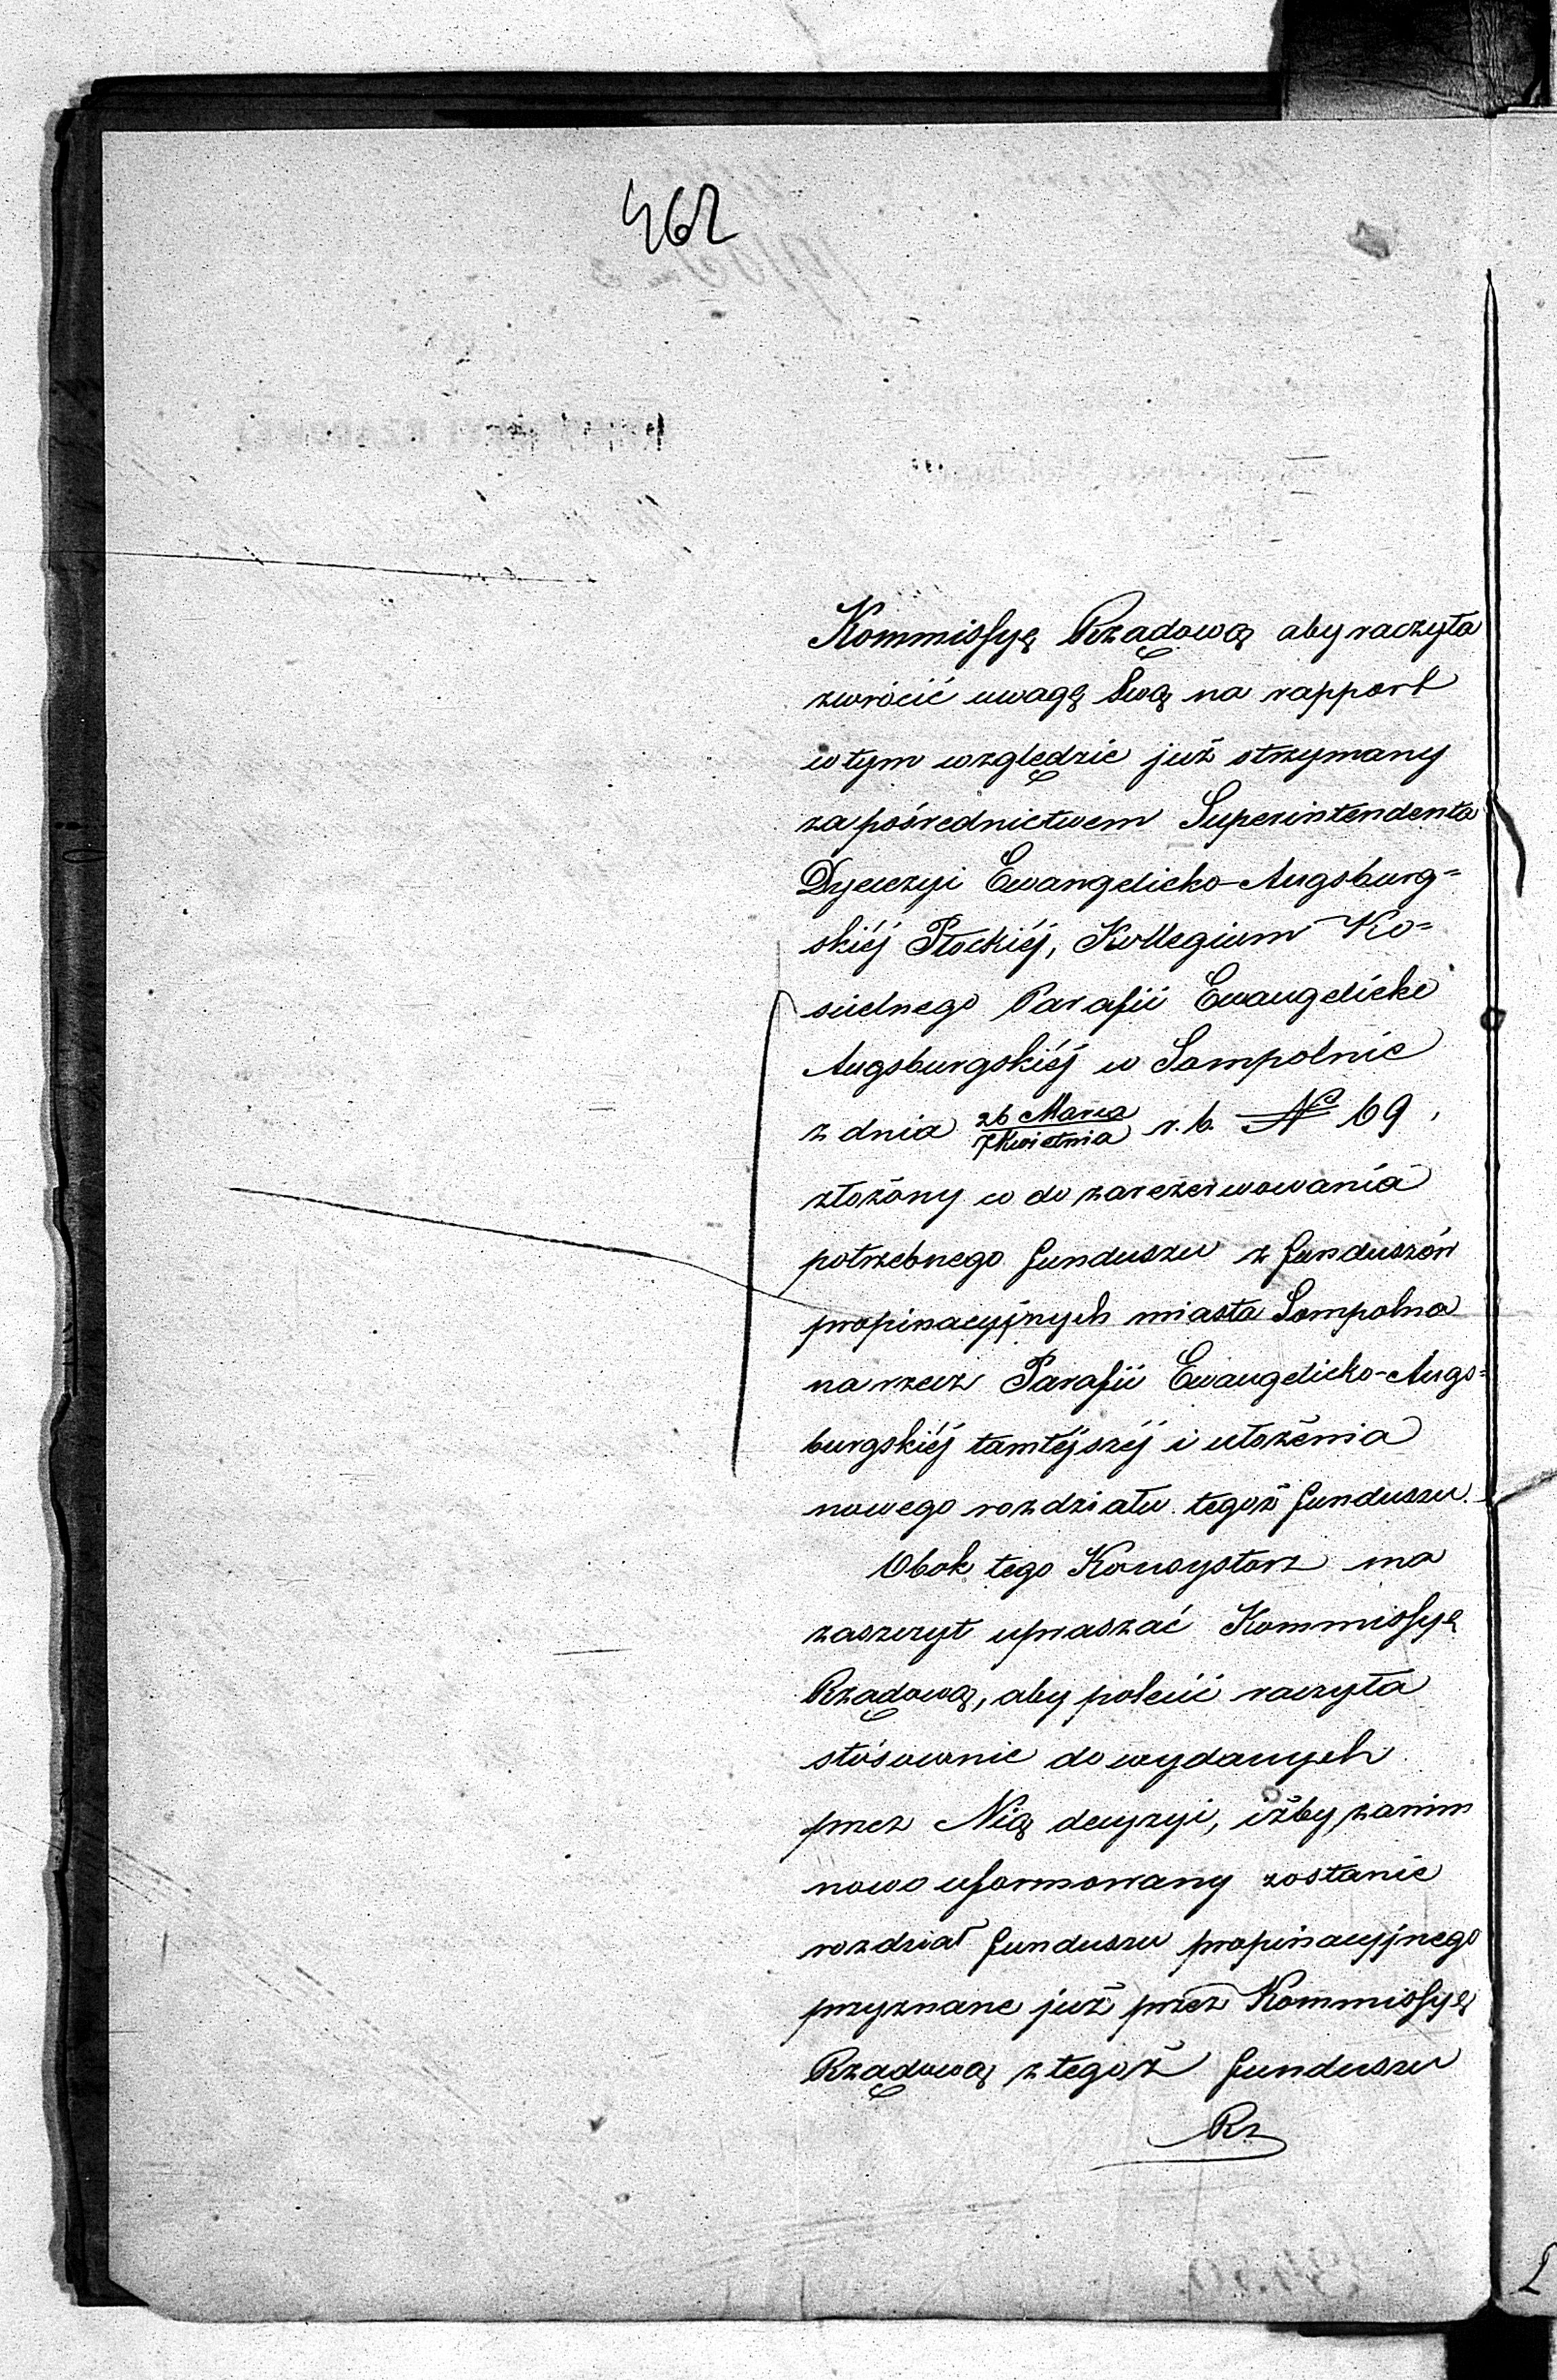 462
Kommissyę Rządową aby raczyła
zwrócić uwagę Swą na rapport
w tym względzie już otrzymany
za pośrednictwem Superintendenta
Dyecezyi Ewangelicko-Augsburg=
skiéj Płockiéj, Kollegium Ko=
ścielnego Parafii Ewangelicko
Augsburgskiéj w Sompolnie
z dnia 26 Marca / 7 Kwietnia r. b. No 69,
złożony co do zarezerwowania
potrzebnego funduszu z funduszów
propinacyjnych miasta Sompolna
na rzecz Parafii Ewangelicko-Augs=
burgskiéj tamtéjszéj i ułożenia
nowego rozdziału tegoż funduszu.
Obok tego Konsystorz ma
zaszczyt upraszać Kommissyę
Rządową, aby polecić raczyła
stósownie do wydanych
przez Nią decyzyi, iżby, zanim
nowo uformowany zostanie
rozdział funduszu propinacyjnego
przyznane już przez Kommissyę
Rządową z tegoż funduszu
Rz.